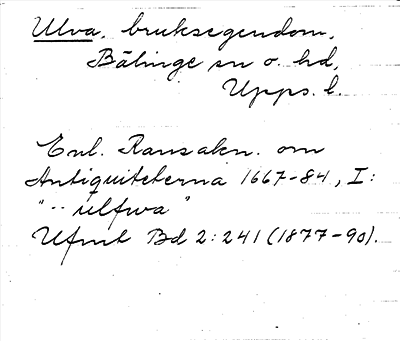 Ulva, bruksegendom,
Bälinge sn o. hd,
Upps. l.
Enl. Ransakn. om
Antiquiteterna 1667-84, I:
"-- ulfwa"
Ufmt Bd 2:241 (1877-90).